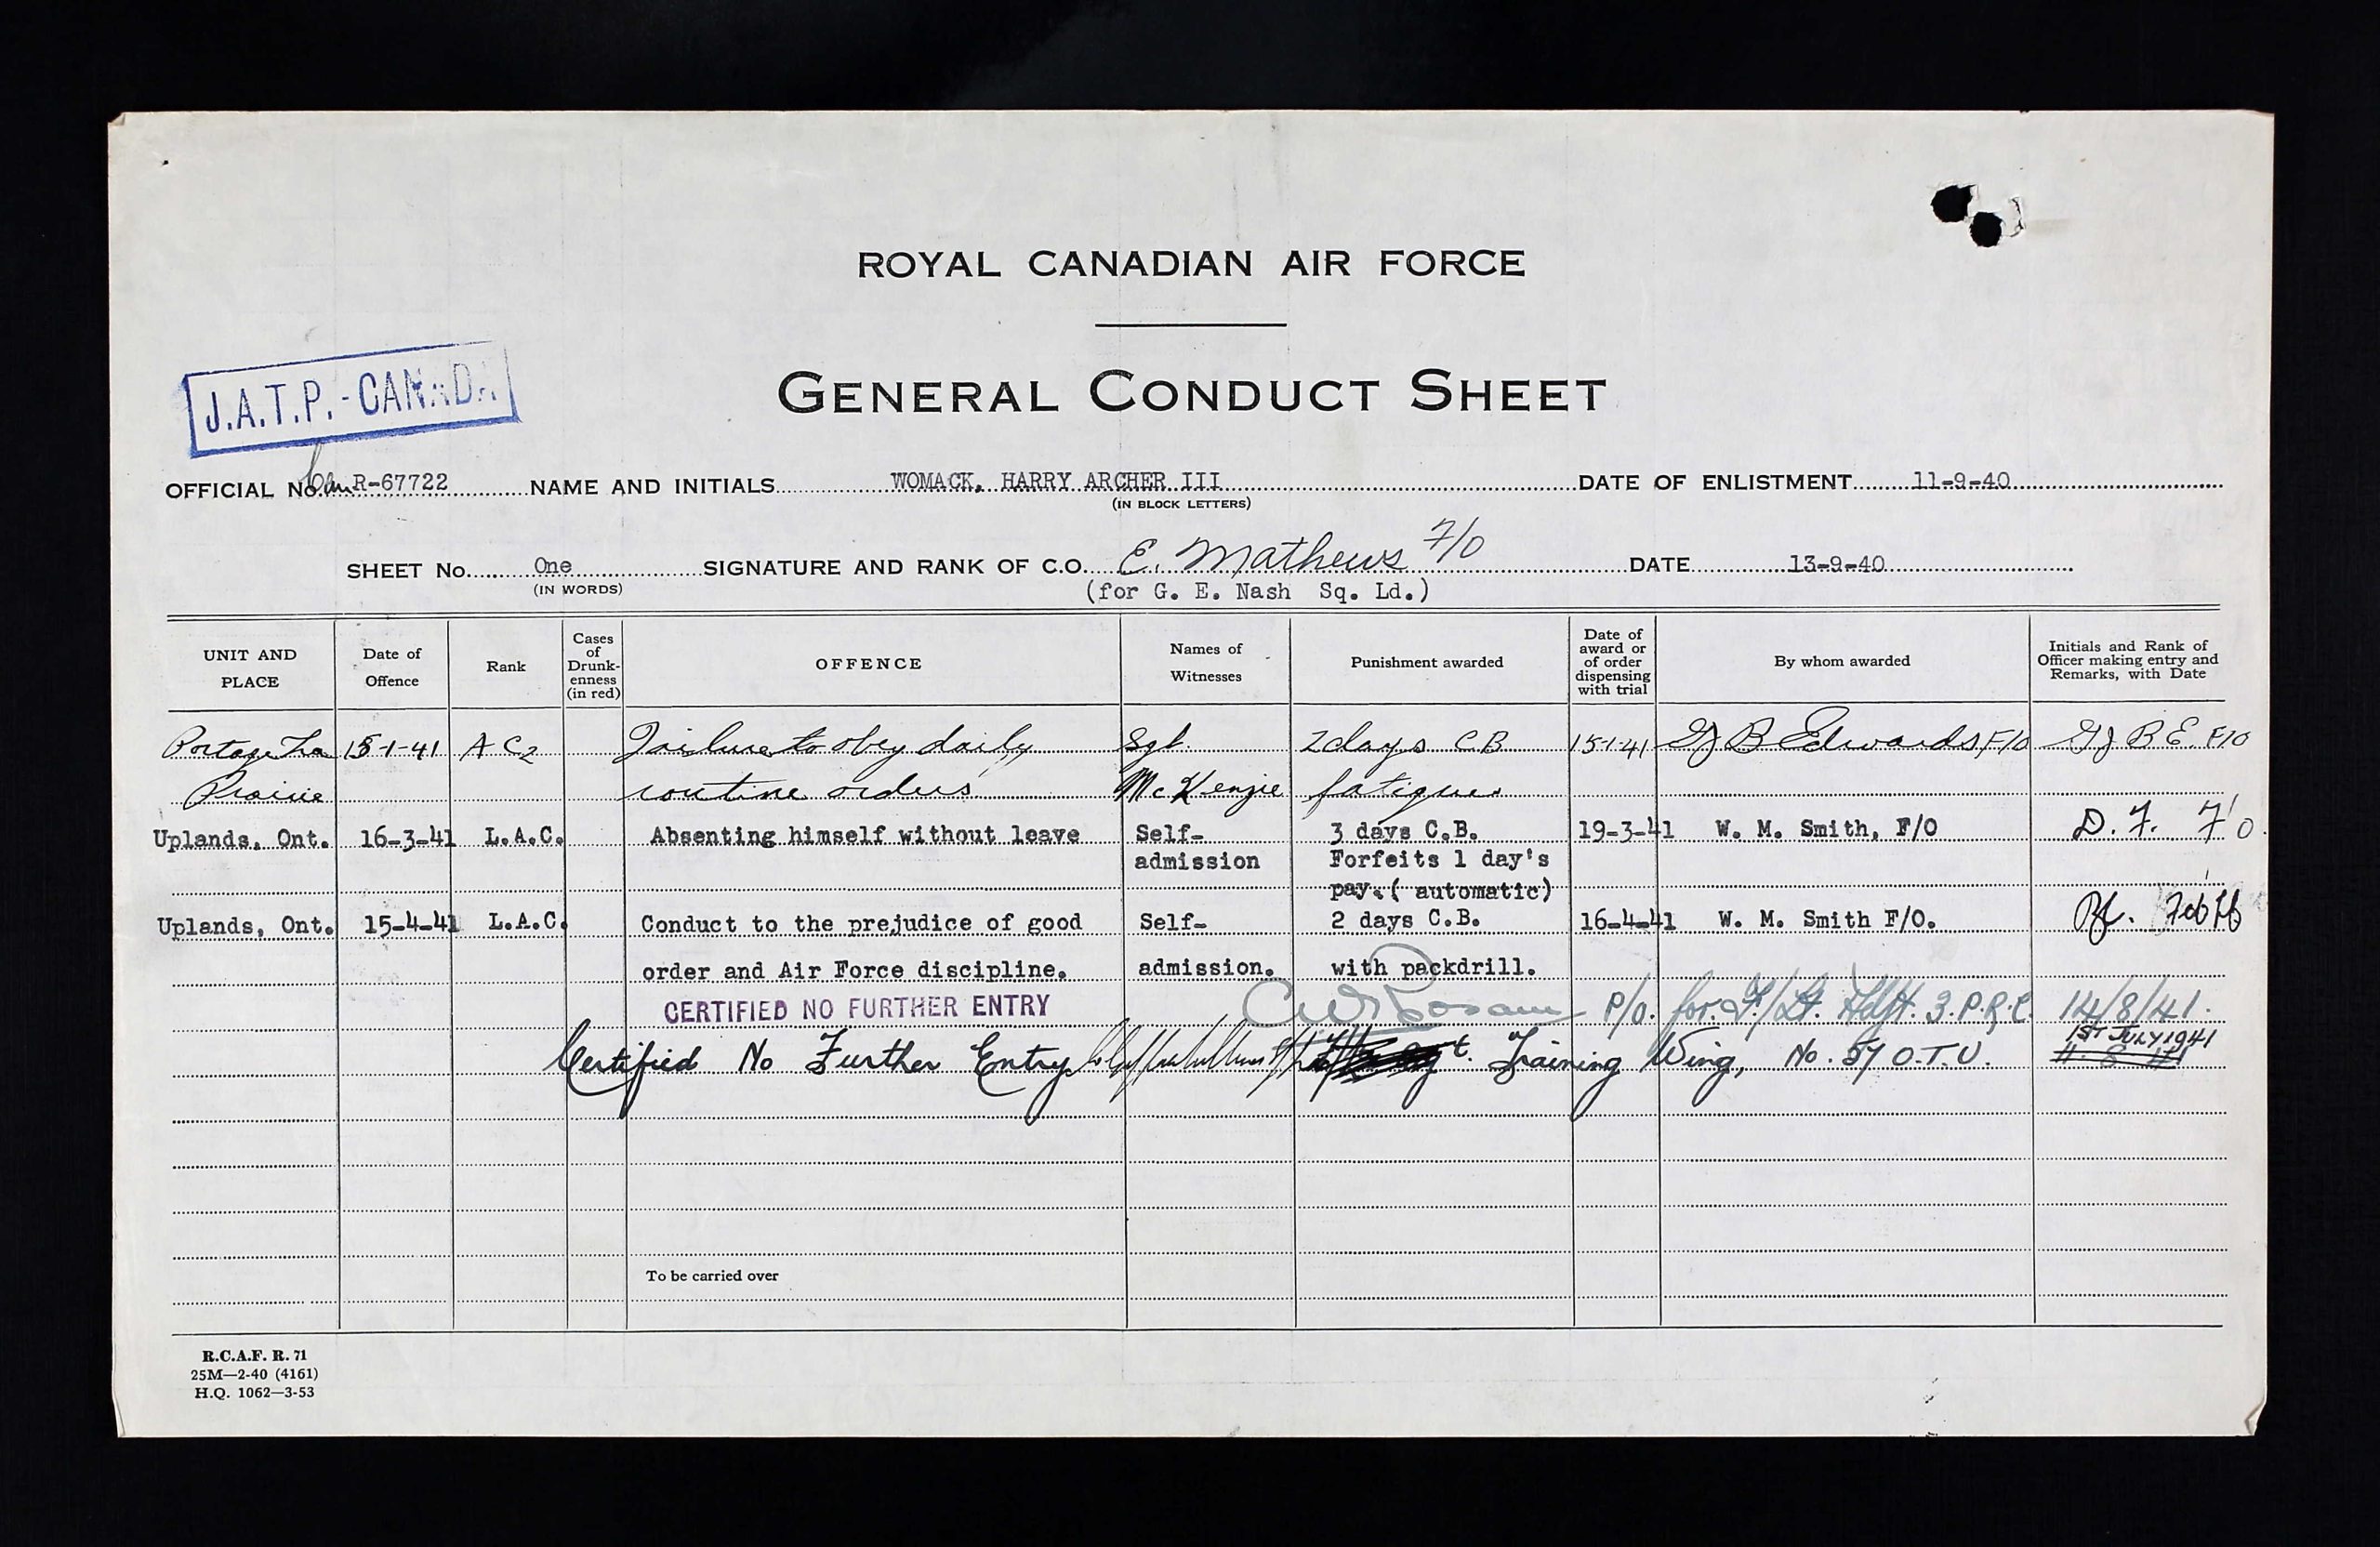 ROYAL CANADIAN AIR FORCE
GENERAL CONDUCT SHEET
J.A.T.P.-CANADA
OFFICIAL No. Can R-67722 NAME AND INITIALS WOMACK, HARRY ARCHER III DATE OF ENLISTMENT 11-9-40
(IN BLOCK LETTERS)
SHEET No. One SIGNATURE AND RANK OF C.O. E. Mathews F/O DATE 13-9-40
(IN WORDS) (for G. E. Nash Sq. Ld.)
UNIT AND PLACE Date of Offence Rank Cases of Drunk-enness (in red) OFFENCE Names of Witnesses Punishment awarded Date of award or of order dispensing with trial By whom awarded Initials and Rank of Officer making entry and Remarks, with Date
Portage La 15-1-41 A C 2 Failure to obey daily Sgt. 2 days C B 15-1-41 G J B Edwards F/O G J B E. F/O
Prairie routine orders McKenzie fatigues
Uplands, Ont. 16-3-41 L.A.C. Absenting himself without leave Self- 3 days C.B. 19-3-41 W. M. Smith, F/O D. F. F/O
admission Forfeits 1 day's
pay.( automatic)
Uplands, Ont. 15-4-41 L.A.C. Conduct to the prejudice of good Self- 2 days C.B. 16-4-41 W. M. Smith F/O.
order and Air Force discipline. admission. with packdrill.
CERTIFIED NO FURTHER ENTRY P/O. for F/Lt. Adjt. 3.P.R.C. 14/8/41.
1ST JULY 1941
Certified No Further Entry Training Wing, No. 57 O.T.U.
To be carried over
R.C.A.F. R. 71
25M—2-40 (4161)
H.Q. 1062—3-53